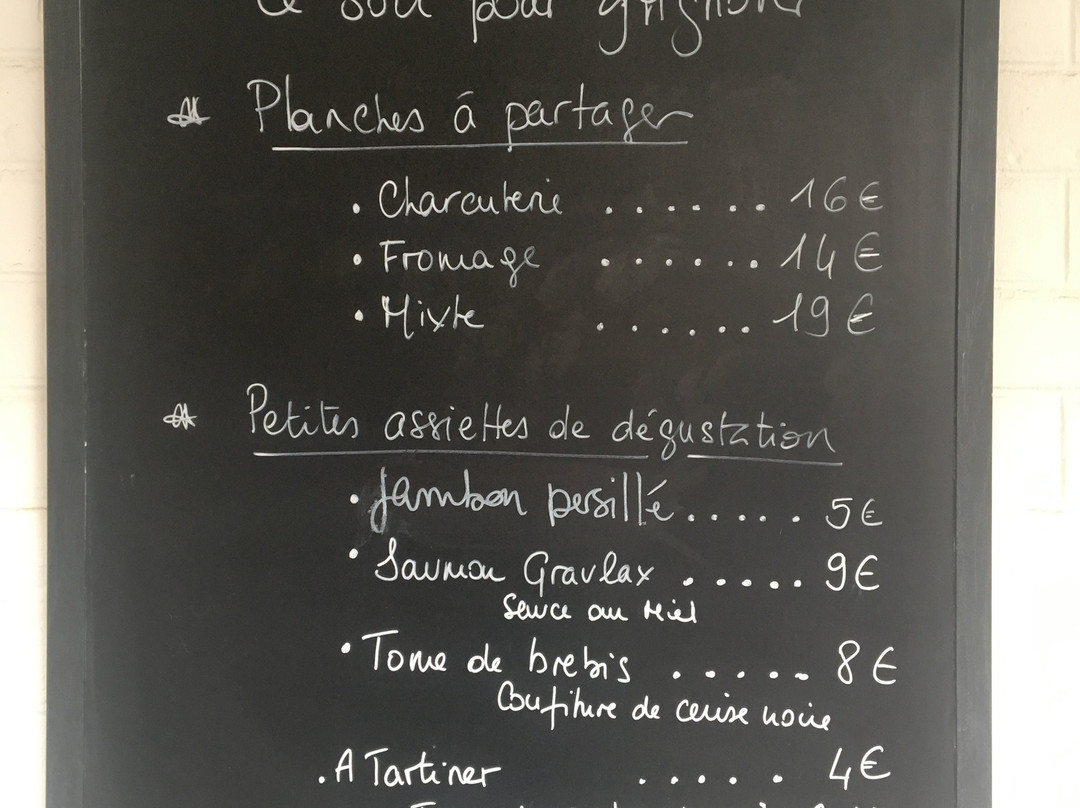 Ce soir pour grignoter
Planches à partager
. Charcuterie ...... 16€
. Fromage ...... 14€
. Mixte ...... 19€
Petites assiettes de dégustation
. Jambon persillé ..... 5€
. Saumon Gravlax ..... 9€
Sauce au Miel
. Tome de brebis ..... 8€
Confiture de cerise noire
. A Tartiner ..... 4€